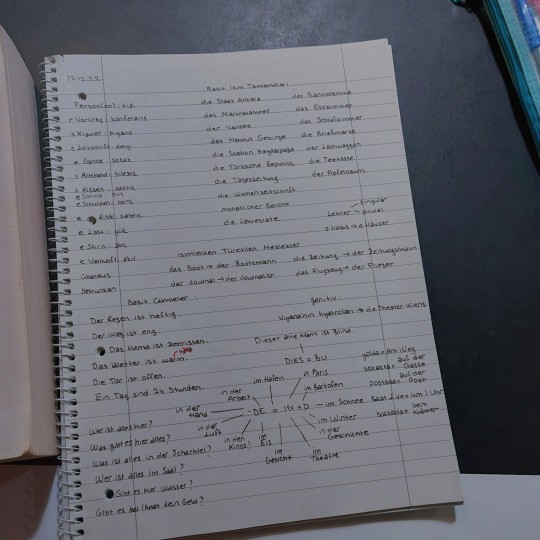 17.12.22
Basit İsim Tamlamaları
Person(en): kişi die Stadt Ankara der Bankbeamte
r Vortrag: konferans das Marmarameer das Esszimmer
s Klavier: piyano der Vansee das Schlafzimmer
e Zeitschrift: dergi das Nemrut Gebirge die Briefmarke
e Gasse: sokak die Station Haydarpaşa der Lastwagen
s Armband: bilezik die Türkische Republik die Teetasse
s Kissen: yastık die Tageszeitung der Apfelbaum
e Schulden: borç die Wochenzeitschrift
e Kiste: sandık monatlicher Bericht singular
e Last: yük die Jahresrate Lehrer plural
e Stirn: alın s Haus → e Häuser
e Vernunft: akıl isimlerden Türetilen Meslekler
überaus das Boot → der Bootsmann die Zeitung → der Zeitungsmann
betrunken der Journal → der Journalist das Flugzeug → der Flieger
Basit Cümleler: genitiv:
Der Regen ist heftig. Viyana'nın tiyatroları → die Theater Wiens
Der Weg ist eng. Dieser alte Mann ist Blind.
Das Hemd ist zerrissen.
Das Wetter ist warm. DIES = BU
Die Tür ist offen. im Hafen in Paris yolda: am Weg
Ein Tag sind 24 Stunden. in der Arbeit im Bartofen sokakta: auf der Gasse
in der Hand - DE = IN + D im Schnee Saat 1'de: um 1 Uhr
postada: auf der Post
Wer ist alles hier? in der Luft im Winter beim
Was gibt es hier alles? in den Kinos im Eis in der Geschichte
Was ist alles in der Schachtel? im Gesicht im Theatre
Wer ist alles im Saal?
Gibt es hier Wasser?
Gibt es bei Ihnen kein Geld?